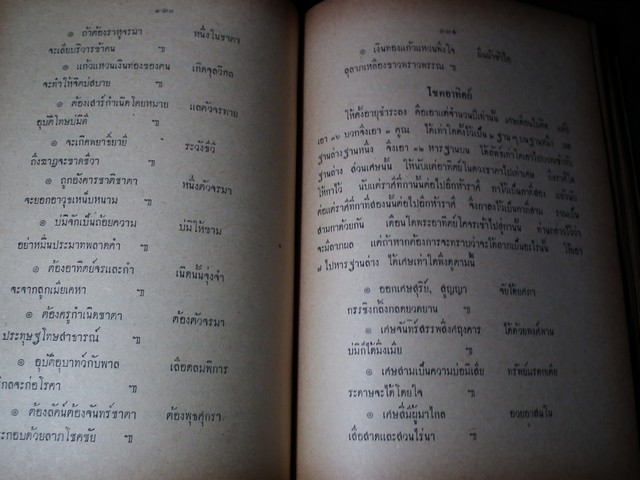 ๑๓๐
๏ ถ้าต้องราหูจรมา หนึ่งในชาตา
จะเสียบริวารข้าคน ฯ
๏ แก้วแหวนเงินทองของตน เกิดจุลวิกล
จะทำให้จิตบ่สบาย ฯ
๏ ต้องเสาร์กำเนิดโดยหมาย แลตัวจรทาย
อุบัติโทษบ่มิดี ฯ
๏ จะเกิดพยาธิ์ยายี ระวังชีวี
ถึงฆาฏจะขาดชีวา ฯ
๏ ถูกอังคารชาติชาตา หนึ่งตัวจรมา
จะยอกอาวุธเหน็บหนาม ฯ
๏ บ่มิจักเป็นถ้อยความ บ่มิให้ขาม
อย่าหมิ่นประมาทพลาดคำ ฯ
๏ ต้องอาทิตย์จรและกำ เนิดนั้นจุ่งจำ
จะจากลูกเมียเคหา ฯ
๏ ต้องครูกำเนิดชาตา ต้องตัวจรมา
ประทุษฐโทษสาธารณ์ ฯ
๏ อุบัติอุบาทว์กับพาล เลือดลมพิการ
วิกลจะก่อโรคา ฯ
๏ ต้องลัคน์ต้องจันทร์ชาตา ต้องพุธศุกรา
ประกอบด้วยลาภโชคชัย ฯ
๑๓๑
๏ เงินทองแก้วแหวนพึงใจ
ตุลาภเหลืองขาวพราวพรรณ ฯ
โชคอาทิตย์
ให้ตั้งอายุชำระลง คือเอาแต่จำนวนปีเท่านั้น
เอา ๑๖ บวกจึงเอา ๓ คูณ ได้เท่าใดตั้งไว้เป็น ๒ ฐาน
ฐานล่างฐานหนึ่ง จึงเอา ๑๒ หารฐานบน
ฐานล่าง ส่วนเศษนั้น ให้นับแต่อาทิตย์ในดวงชาตาไปเท่าเศษ
ให้กาไว้ นับแต่ราศีที่กานั้นต่อไปอีกห้าราศี กาไว้เป็นกาที่สอง
ต่อแต่ราศีที่กาที่สองนั้นต่อไปอีกห้าราศี จึงกาลงไว้เป็นกาที่สาม
สามกาด้วยกัน เดือนใดพระอาทิตย์โคจรเข้าไปสู่กานั้น ท่านกล่าวไว้ว่า
จะมีลาภผล แต่ถ้าหากต้องการจะทราบว่าจะได้ลาภเป็นอะไรนั้น ให้เอา
๗ ไปหารฐานล่าง ได้เศษเท่าใดพึงดูตามนี้
๏ ออกเศษสุริย์, สูญญา
กรรชิงก์ลิ้งกลดยวดยาน ฯ
๏ เศษจันทร์สรรพสิ่งศฤงคาร
บ่มิก็ได้มิ่งเมีย ฯ
๏ เศษสามเป็นความบ่อมิเสีย
ระดาษจะได้โดยใจ ฯ
๏ เศษสี่มีผู้มาไกล
เสื่อสาดและสวนไร่นา ฯ